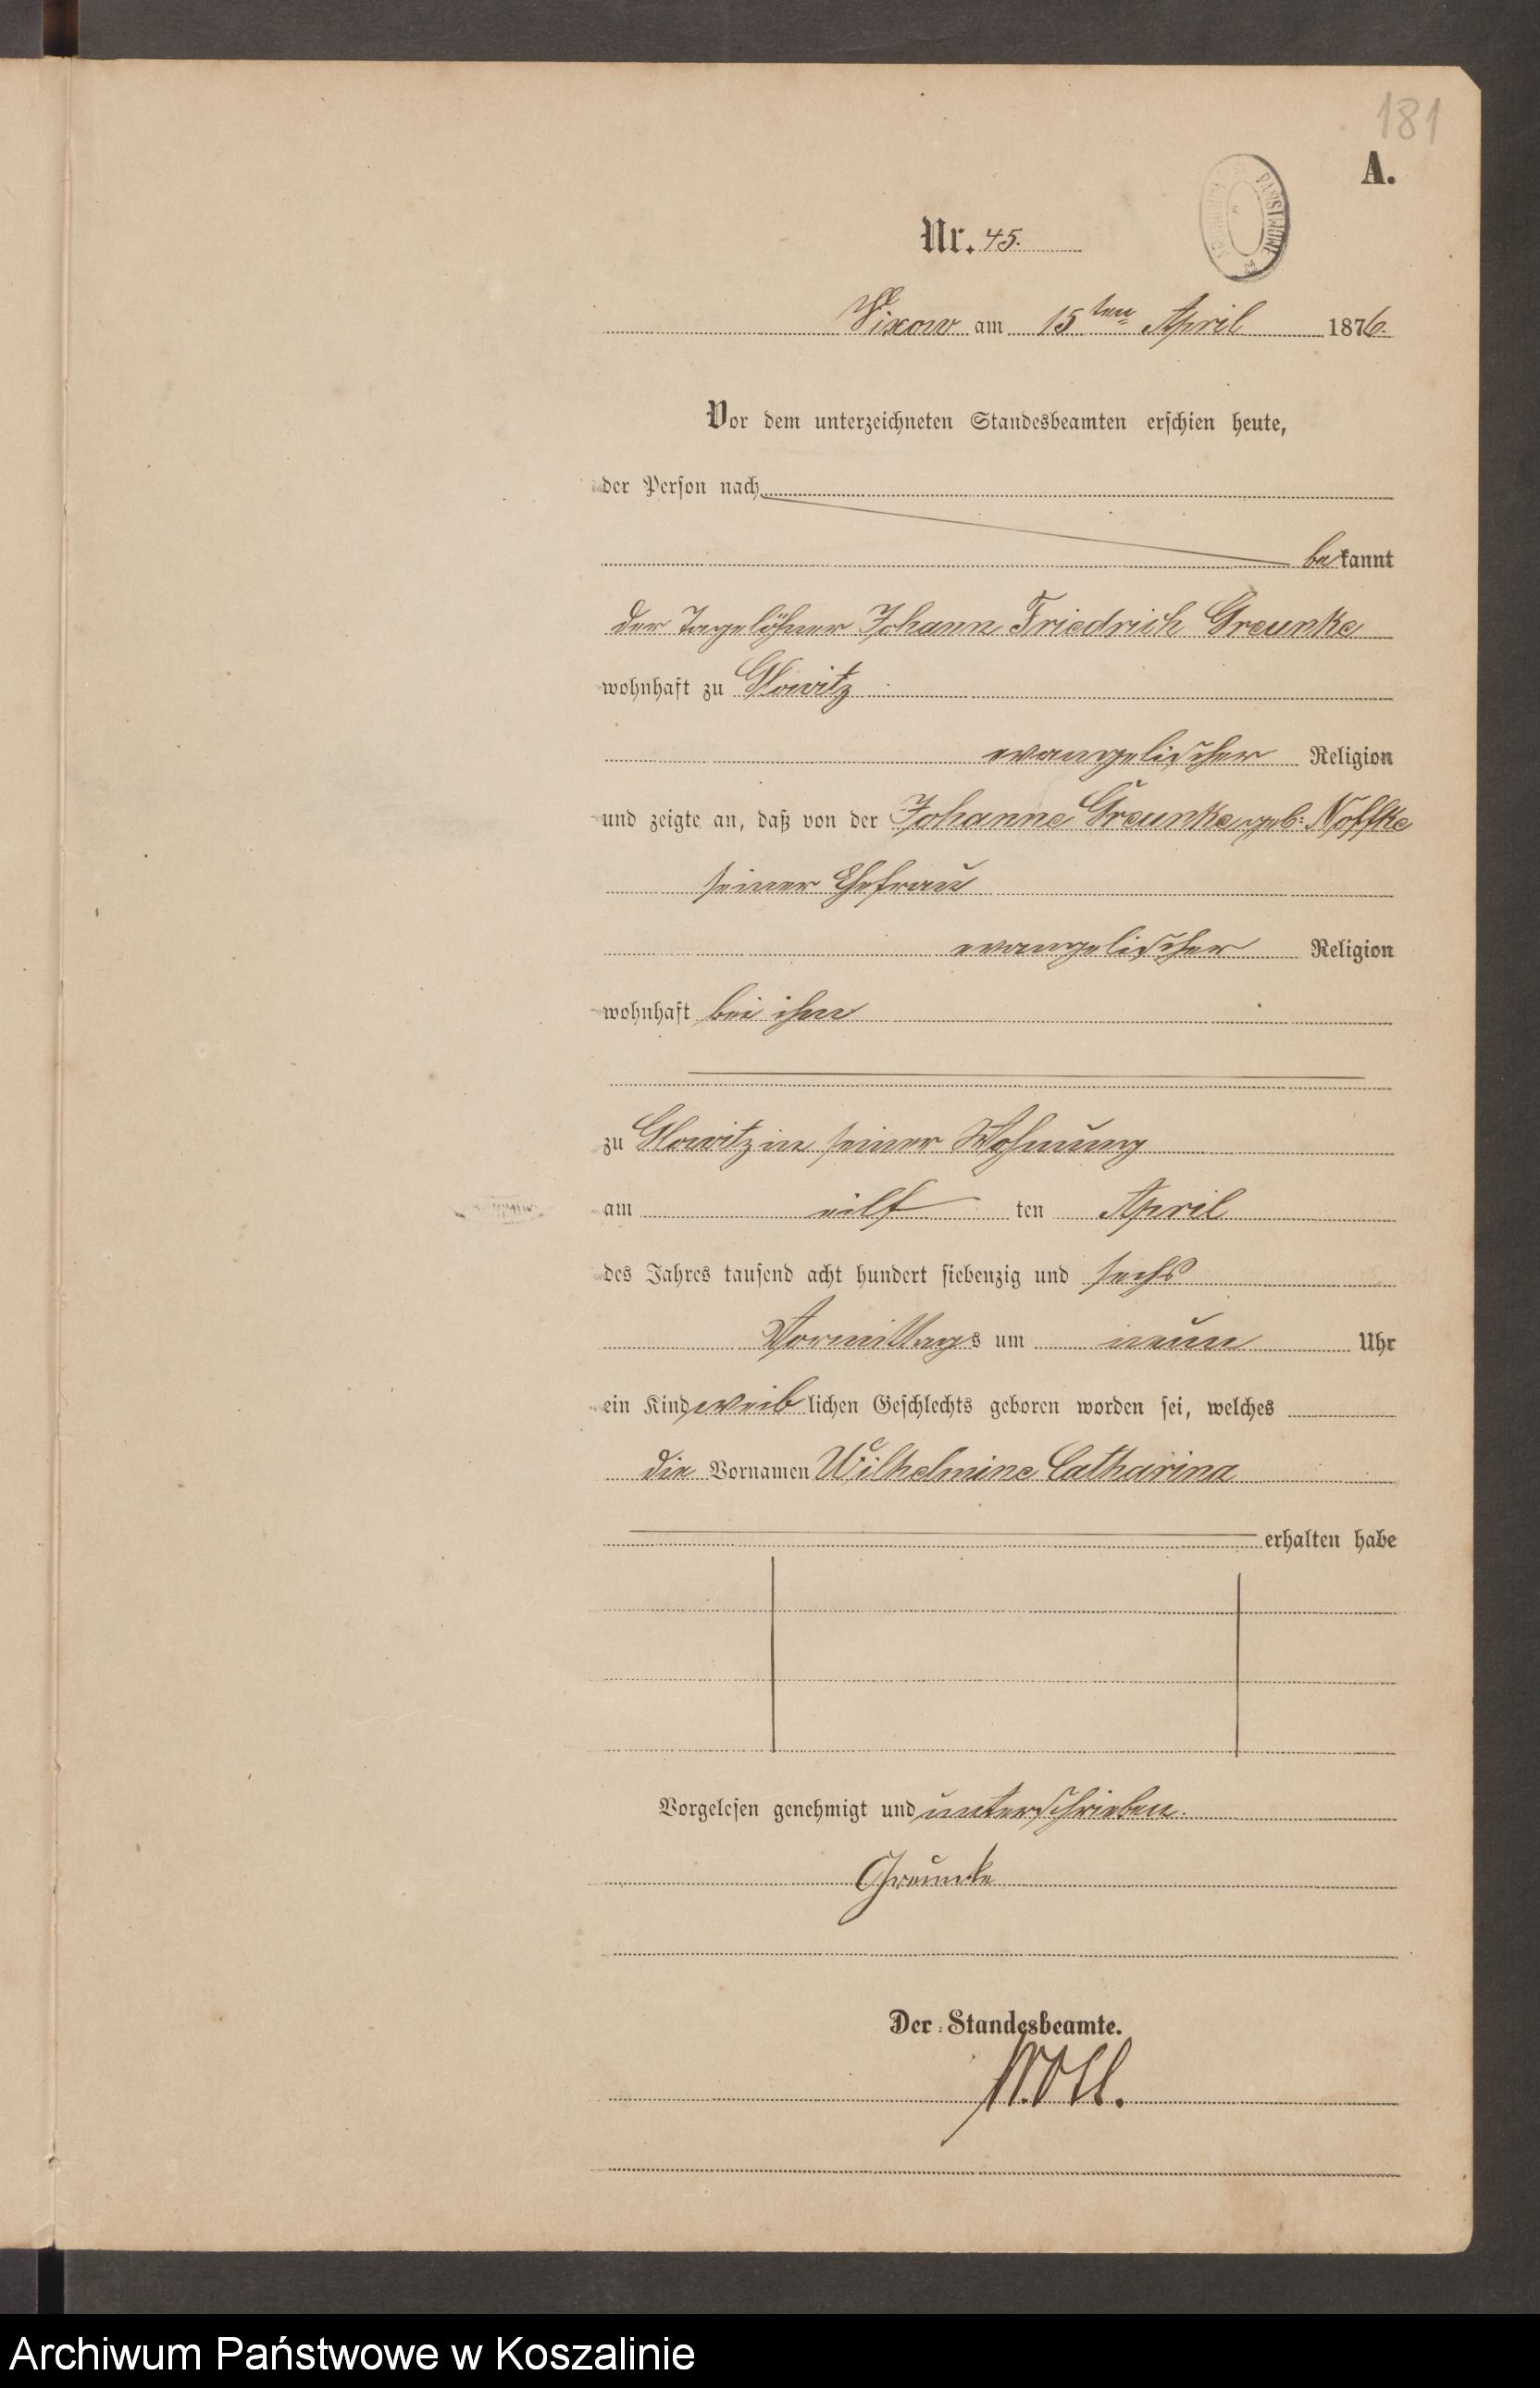 181
A.
Nr. 45.
Vixow am 15ten April 1876.
Vor dem unterzeichneten Standesbeamten erschien heute,
der Person nach
bekannt
der Tagelöhner Johann Friedrich Greunke
wohnhaft zu Glowitz
evangelischer Religion
und zeigte an, daß von der Johanne Greunke geb: Noffke
seiner Ehefrau
evangelischer Religion
wohnhaft bei ihm
zu Glowitz in seiner Wohnung
am eilf ten April
des Jahres tausend acht hundert siebenzig und sechs
Vormittags um neun Uhr
ein Kind weiblichen Geschlechts geboren worden sei, welches
die Vornamen Wilhelmine Catharina
erhalten habe
Vorgelesen genehmigt und unterschrieben.
Greunke
Der Standesbeamte.
Archiwum Państwowe w Koszalinie